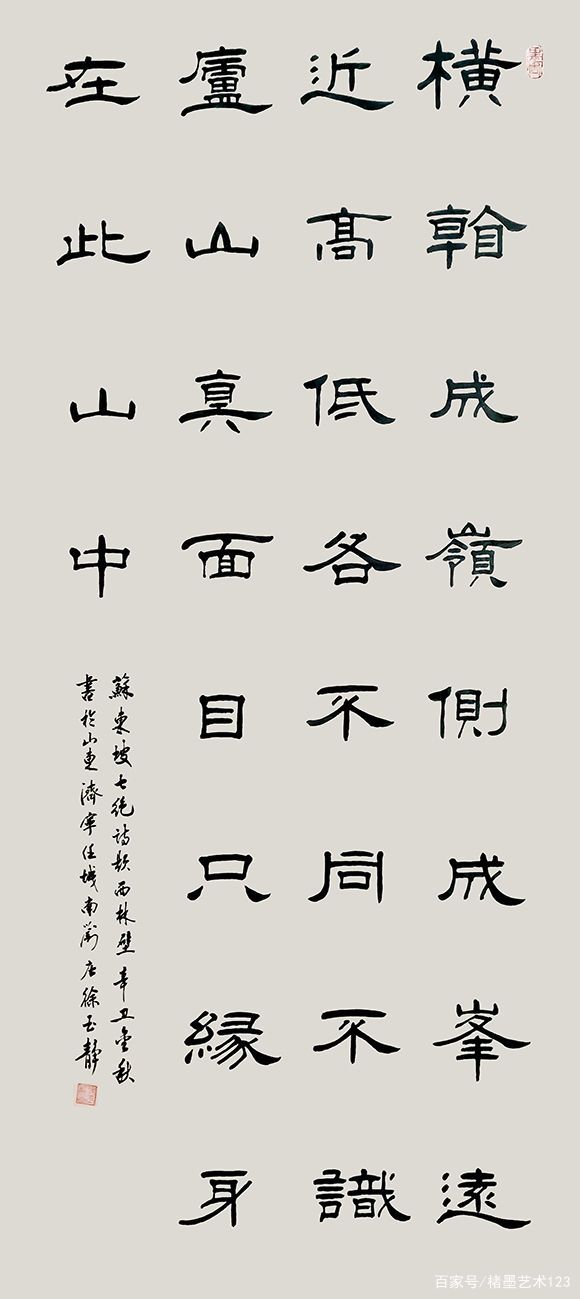 横看成嶺側成峯遠
近髙低各不同不識
廬山真面目只緣身
在此山中
蘇東坡七絶詩題西林壁辛丑金秋
書於山東濟寧任城南店徐玉靜
百家号/楮墨艺术123